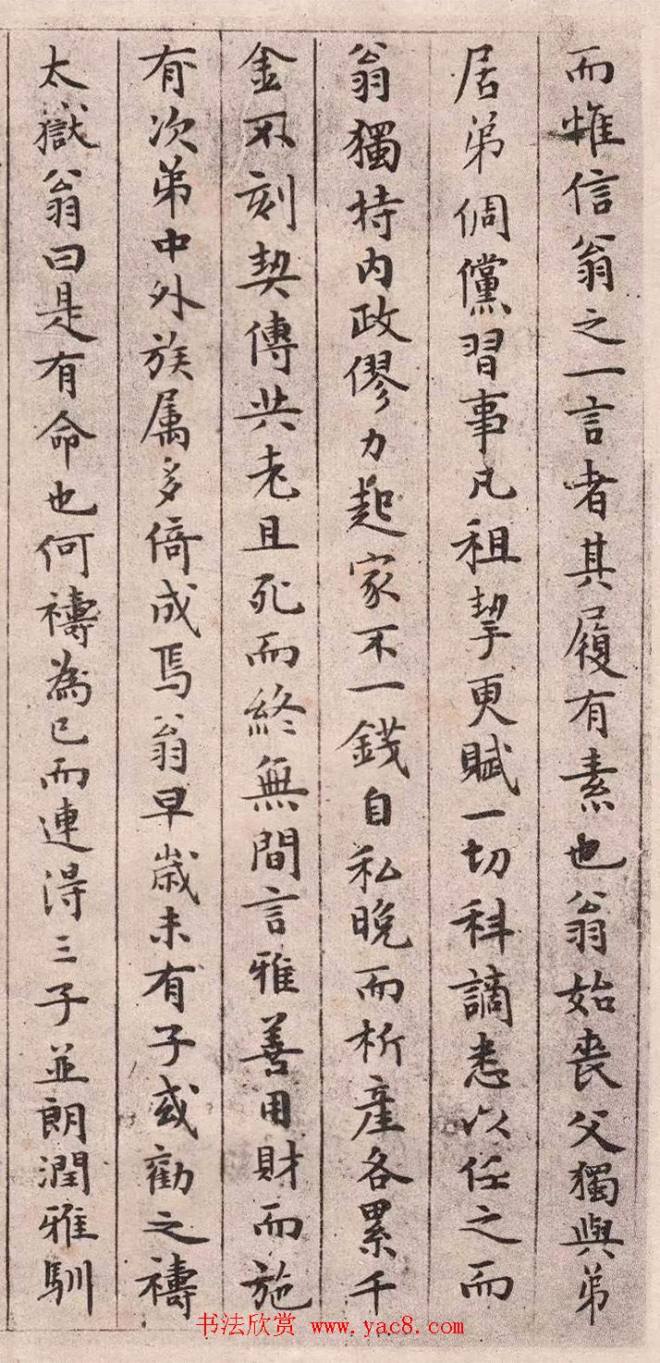 而惟信翁之一言者其履有素也翁始喪父獨與弟
居弟倜儻習事凡租挈更賦一切科謫悉以任之而
翁獨持内政僇力起家不一錢自私晚而析產各累千
金不刻契傳共老且死而終無間言雅善用財而施
有次弟中外族属多倚成焉翁早歲未有子或勸之禱
太嶽翁曰是有命也何禱為已而連淂三子並朗潤雅馴
书法欣赏 www.yac8.com